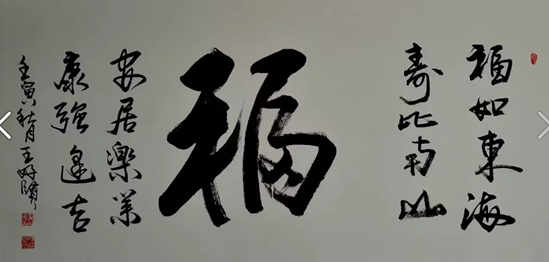 福如東海
壽比南山
福
安居樂業
康強逢吉
壬寅秋月王